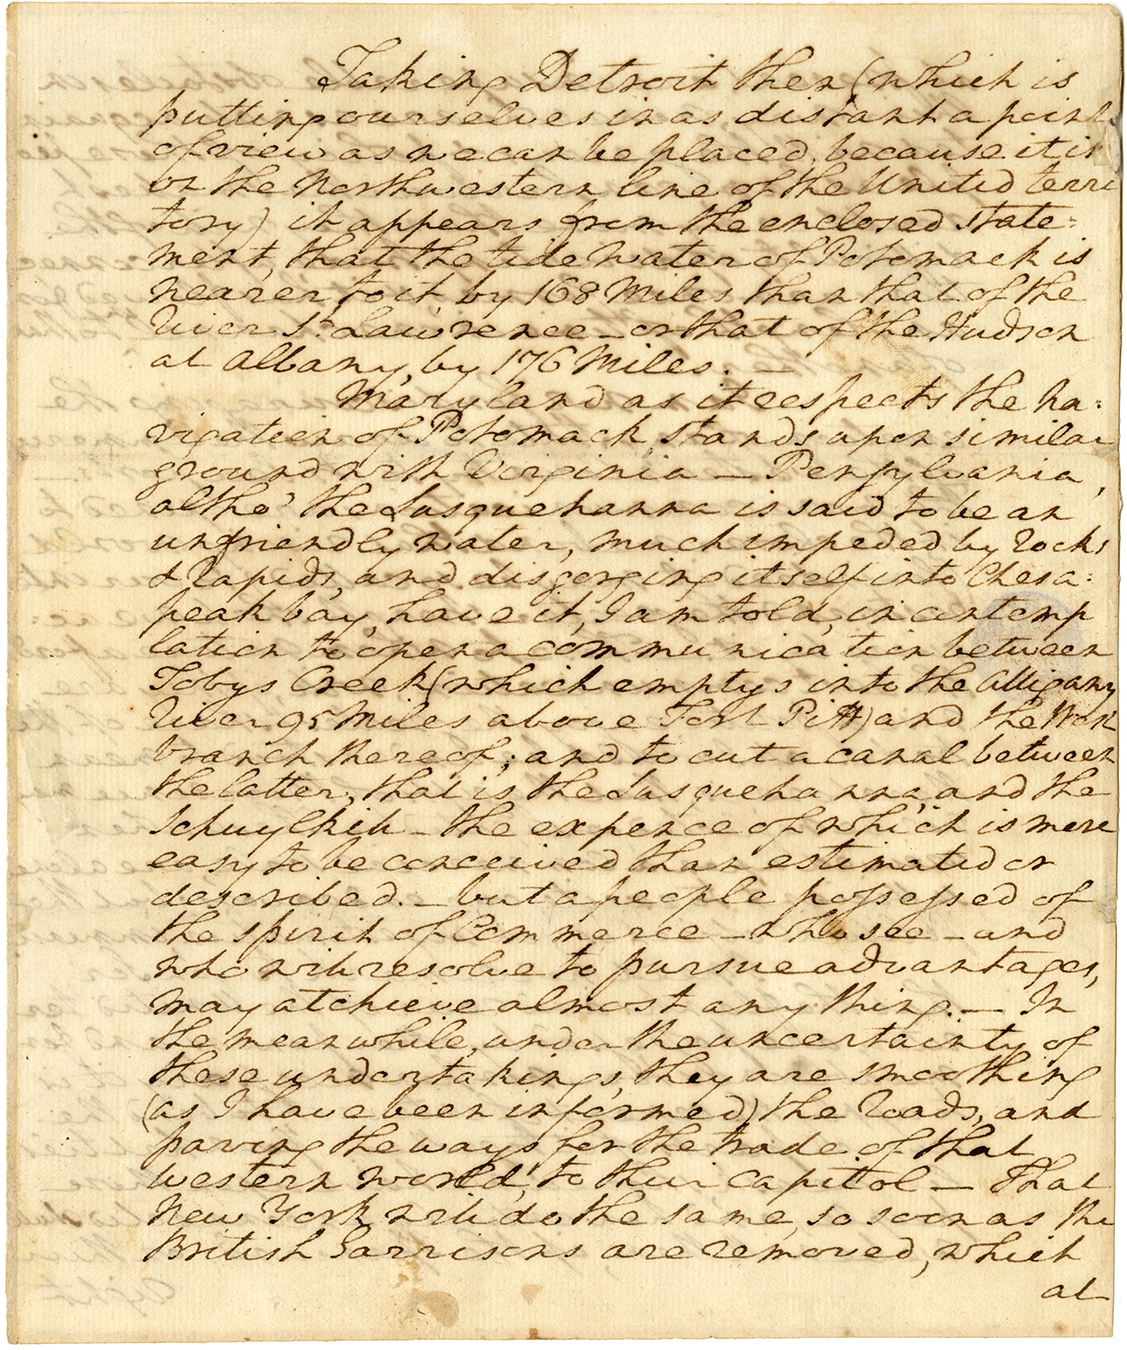 Taking Detroit then (which is
putting ourselves in as distant a point
of view as we can be placed, because it is
on the Northwestern line of the United terri
tory) it appears from the enclosed state:
ment, that the tide Water of Potomack is
nearer to it by 168 Miles than that of the
River St. Lawrence - or that of the Hudson
at Albany, by 176 Miles. —
Maryland as it respects the na:
vigation of Potomack, stands upon similar
ground with Virginia — Pensylvania,
altho' the Susquehanna is said to be an
unfriendly water, much impeded by rocks
& Rapids, and disgorging itself into Chesa:
peak bay, have it, I am told, in contemp
lation to open a communication between
Tobys Creek (which emptys into the Alligany
River 95 Miles above Fort Pitt) and the West
branch thereof; and to cut a canal between
the latter, that is the Susquehanna, and the
Schuylkill - the expence of which is more
easy to be conceived than estimated or
described. - but a people possessed of
the spirit of Commerce - who see - and
who will resolve to pursue advantages,
may atchieve almost any thing. — In
the meanwhile, under the uncertainty of
these undertakings, they are smoothing
(as I have been informed) the roads, and
paving the ways for the trade of that
western world, to their capitol — That
New York will do the same, so soon as the
British Garrisons are removed, which
at